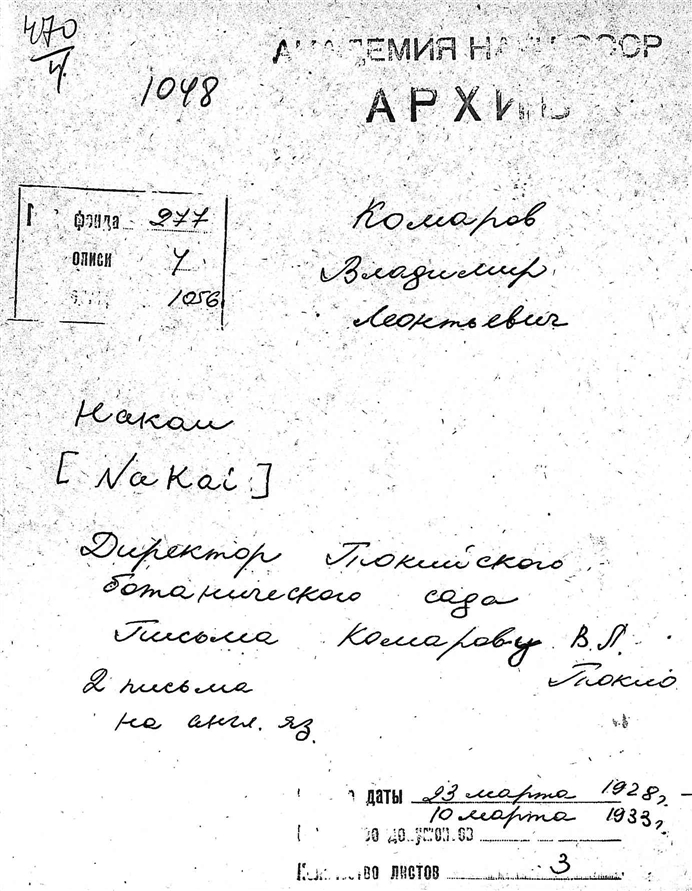 470
4.
1048
АКАДЕМИЯ НАУК СССР
АРХИВ
фонда 277
описи 4
1056
Комаров
Владимир
Леонтьевич
Накаи
[NaKai]
Директор Токийского
ботанического сада
Письма Комарову В.Л.
Токио
2 письма
на англ. яз.
даты 23 марта 1928 г. –
10 марта 1933 г.
Количество листов 3